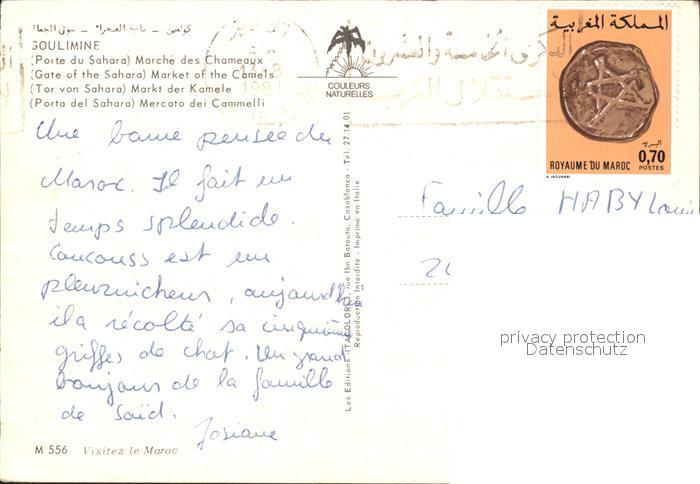 كولمين - باب الصحراء - سوق الجمال
GOULIMINE
(Porte du Sahara) Marché des Chameaux
(Gate of the Sahara) Market of the Camels
(Tor von Sahara) Markt der Kamele
(Porta del Sahara) Mercato dei Cammelli
COULEURS
NATURELLES
1981
الذكرى الخامسة والعشرون
المملكة المغربية
البريد
0,70
ROYAUME DU MAROC POSTES
Une bonne pensée du
Maroc. Il fait un
temps splendide.
Couscouss est un
pleurnicheur, aujourd'hui
il a récolté sa cinquième
griffes de chat. Un grand
bonjour de la famille
de Saïd.
Josiane
Famille HABY Louis
privacy protection
Datenschutz
Les Editions ITALCOLOR 3, rue Ibn Batouta, Casablanca - Tél. 27.14.01
Reproduction Interdite - Imprimé en Italie
M 556 Visitez le Maroc